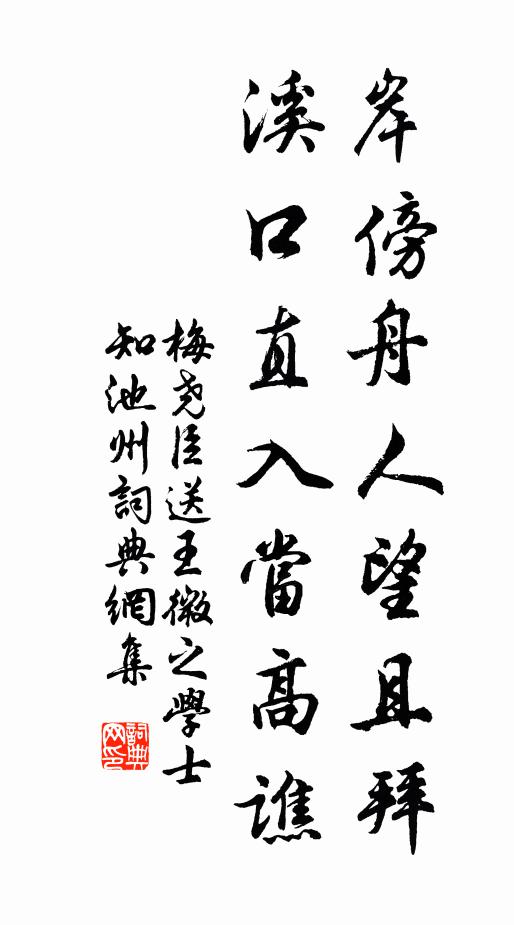 岸傍舟人望且拜
溪口直入當高譙
梅堯臣送王微之學士
知池州詞典網集
詞典网印